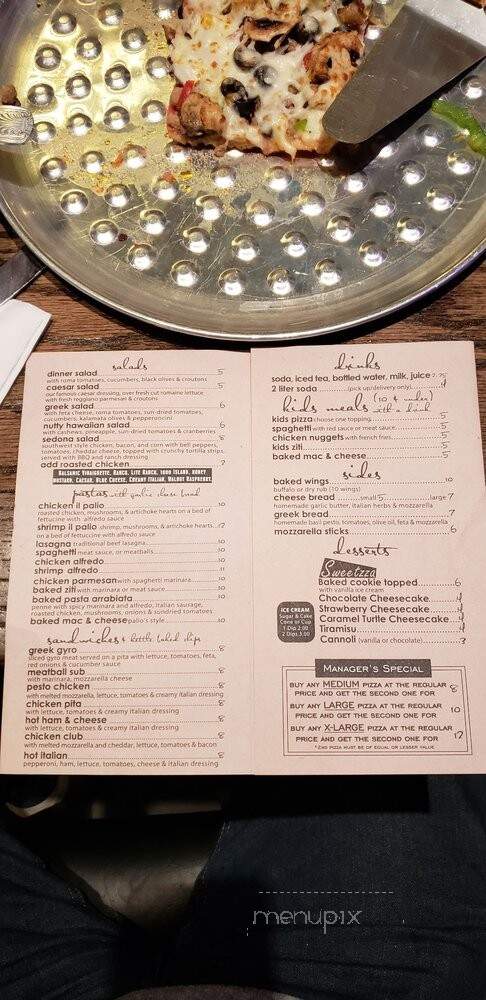 salads
dinner salad 5
with roma tomatoes, cucumbers, black olives & croutons
caesar salad 5
our famous caesar dressing, over fresh cut romaine lettuce
with fresh reggiano parmesan & croutons
greek salad 6
with feta cheese, roma tomatoes, sun-dried tomatoes,
cucumbers, kalamata olives & pepperoncini
nutty hawaiian salad 6
with cashews, pineapple, sun-dried tomatoes & cranberries
sedona salad 8
southwest style chicken, bacon, and corn with bell peppers,
tomatoes, cheddar cheese, topped with crunchy tortilla strips
served with BBQ and ranch dressing
add roasted chicken 2
Balsamic Vinaigrette, Ranch, Lite Ranch, 1000 Island, Honey
Mustard, Caesar, Blue Cheese, Creamy Italian, Walnut Raspberry
pastas with garlic cheese bread
chicken il palio 10
roasted chicken, mushrooms, & artichoke hearts on a bed of
fettuccine with alfredo sauce
shrimp il palio shrimp, mushrooms, & artichoke hearts 12
on a bed of fettuccine with alfredo sauce
lasagna traditional beef lasagna 10
spaghetti meat sauce, or meatballs 10
chicken alfredo 10
shrimp alfredo 11
chicken parmesan with spaghetti marinara 10
baked ziti with marinara or meat sauce 10
baked pasta arrabiata 10
penne with spicy marinara and alfredo, Italian sausage,
roasted chicken, mushrooms, onions & sundried tomatoes
baked mac & cheese palio's style 10
sandwiches & kettle baked chips
greek gyro 8
sliced gyro meat served on a pita with lettuce, tomatoes, feta,
red onions & cucumber sauce
meatball sub 8
with marinara, mozzarella cheese
pesto chicken 8
with melted mozzarella, lettuce, tomatoes & creamy italian dressing
chicken pita 8
with lettuce, tomatoes & creamy italian dressing
hot ham & cheese 8
with lettuce, tomatoes & creamy italian dressing
chicken club 8
with melted mozzarella and cheddar, lettuce, tomatoes & bacon
hot italian 8
pepperoni, ham, lettuce, tomatoes, cheese & italian dressing
drinks
soda, iced tea, bottled water, milk, juice 2.25
2 liter soda (pick up/delivery only) 4
kids meals (10 & under) with a drink
kids pizza choose one topping 5
spaghetti with red sauce or meat sauce 5
chicken nuggets with french fries 5
kids ziti 5
baked mac & cheese 5
sides
baked wings 10
buffalo or dry rub (10 wings)
cheese bread small 5 large 7
homemade garlic butter, italian herbs & mozzarella
greek bread 7
homemade basil pesto, tomatoes, olive oil, feta & mozzarella
mozzarella sticks 6
desserts
Sweetzza
Baked cookie topped 6
with vanilla ice cream
Chocolate Cheesecake 4
Strawberry Cheesecake 4
Caramel Turtle Cheesecake 4
Tiramisu 4
Cannoli (vanilla or chocolate) 3
ICE CREAM
Sugar & Cake
Cone or Cup
1 Dip 2.00
2 Dips 3.00
Manager's Special
Buy any MEDIUM pizza at the regular
price and get the second one for 8
Buy any LARGE pizza at the regular
price and get the second one for 10
Buy any X-LARGE pizza at the regular
price and get the second one for 12
*2nd pizza must be of equal or lesser value
menupix